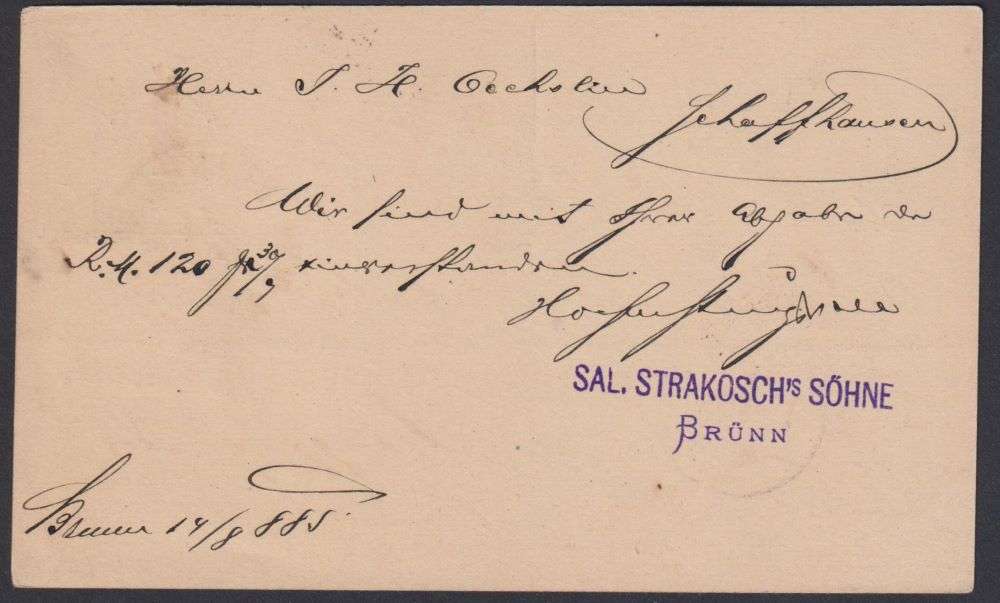 Herrn J. H. Oechslin
Schaffhausen
Wir sind mit Ihrer Abgabe de
R.M. 120 pr 30/9 einverstanden.
Hochachtungsvoll
SAL. STRAKOSCH'S SÖHNE
BRÜNN
Bruenn 14/8 885